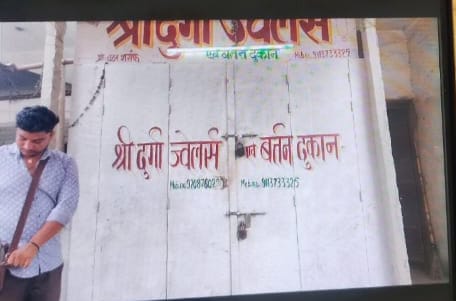 श्री दुर्गा ज्वेलर्स
एवं बर्तन दुकान
Mob. 9113733325
श्री दुर्गा ज्वेलर्स एवं बर्तन दुकान
Mob. 9113733325